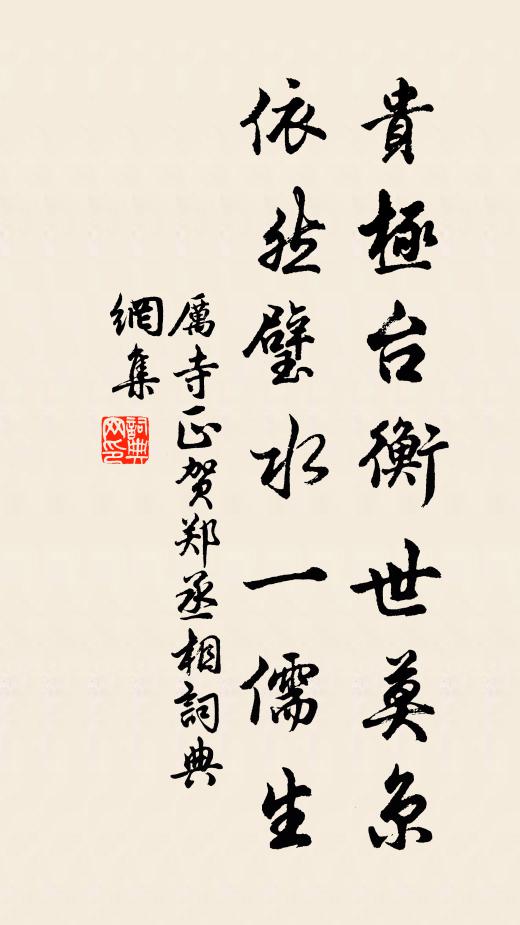 貴極台衡世莫京
依然璧水一儒生
厲寺正賀郑丞相詞典
網集
詞典
网印